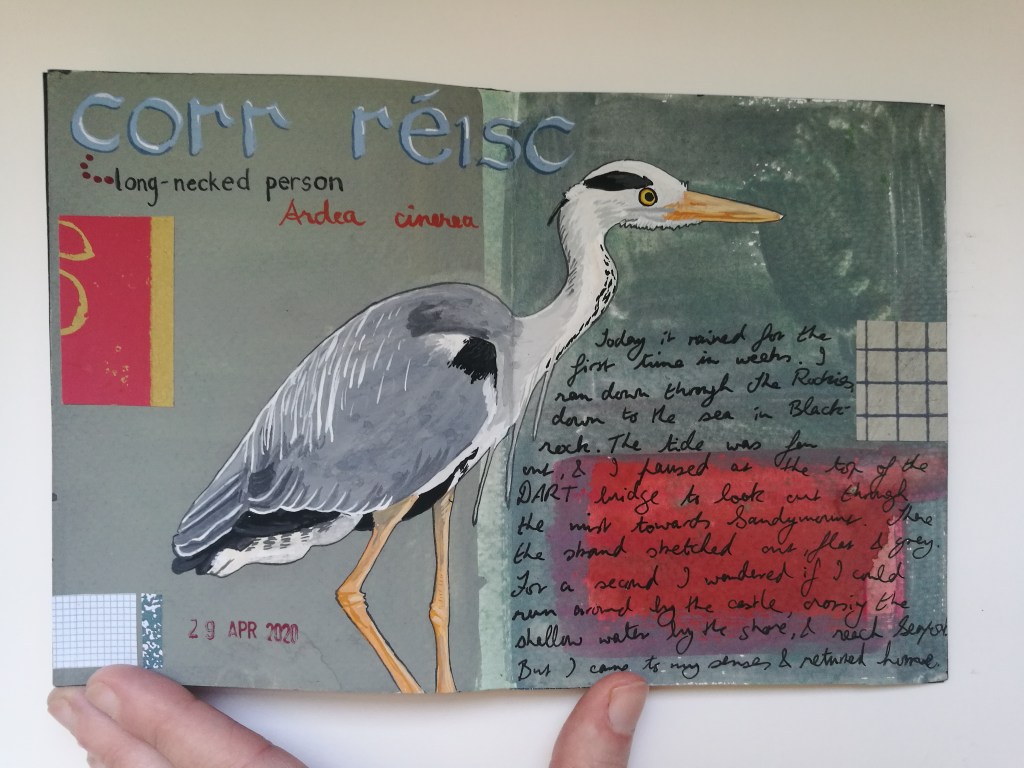 corr réisc
long-necked person
Ardea cinerea
29 APR 2020
Today it rained for the
first time in weeks. I
ran down through the Rockies
down to the sea in Black-
rock. The tide was far
out, & I paused at the top of the
DART bridge to look out through
the mist towards Sandymount. There
the strand stretched out, flat & grey.
For a second I wondered if I could
run around by the castle, crossing the
shallow water by the shore, & reach
But I came to my senses & returned home.